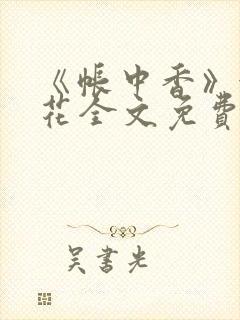 《帐中香》
花全文免費
吴書光